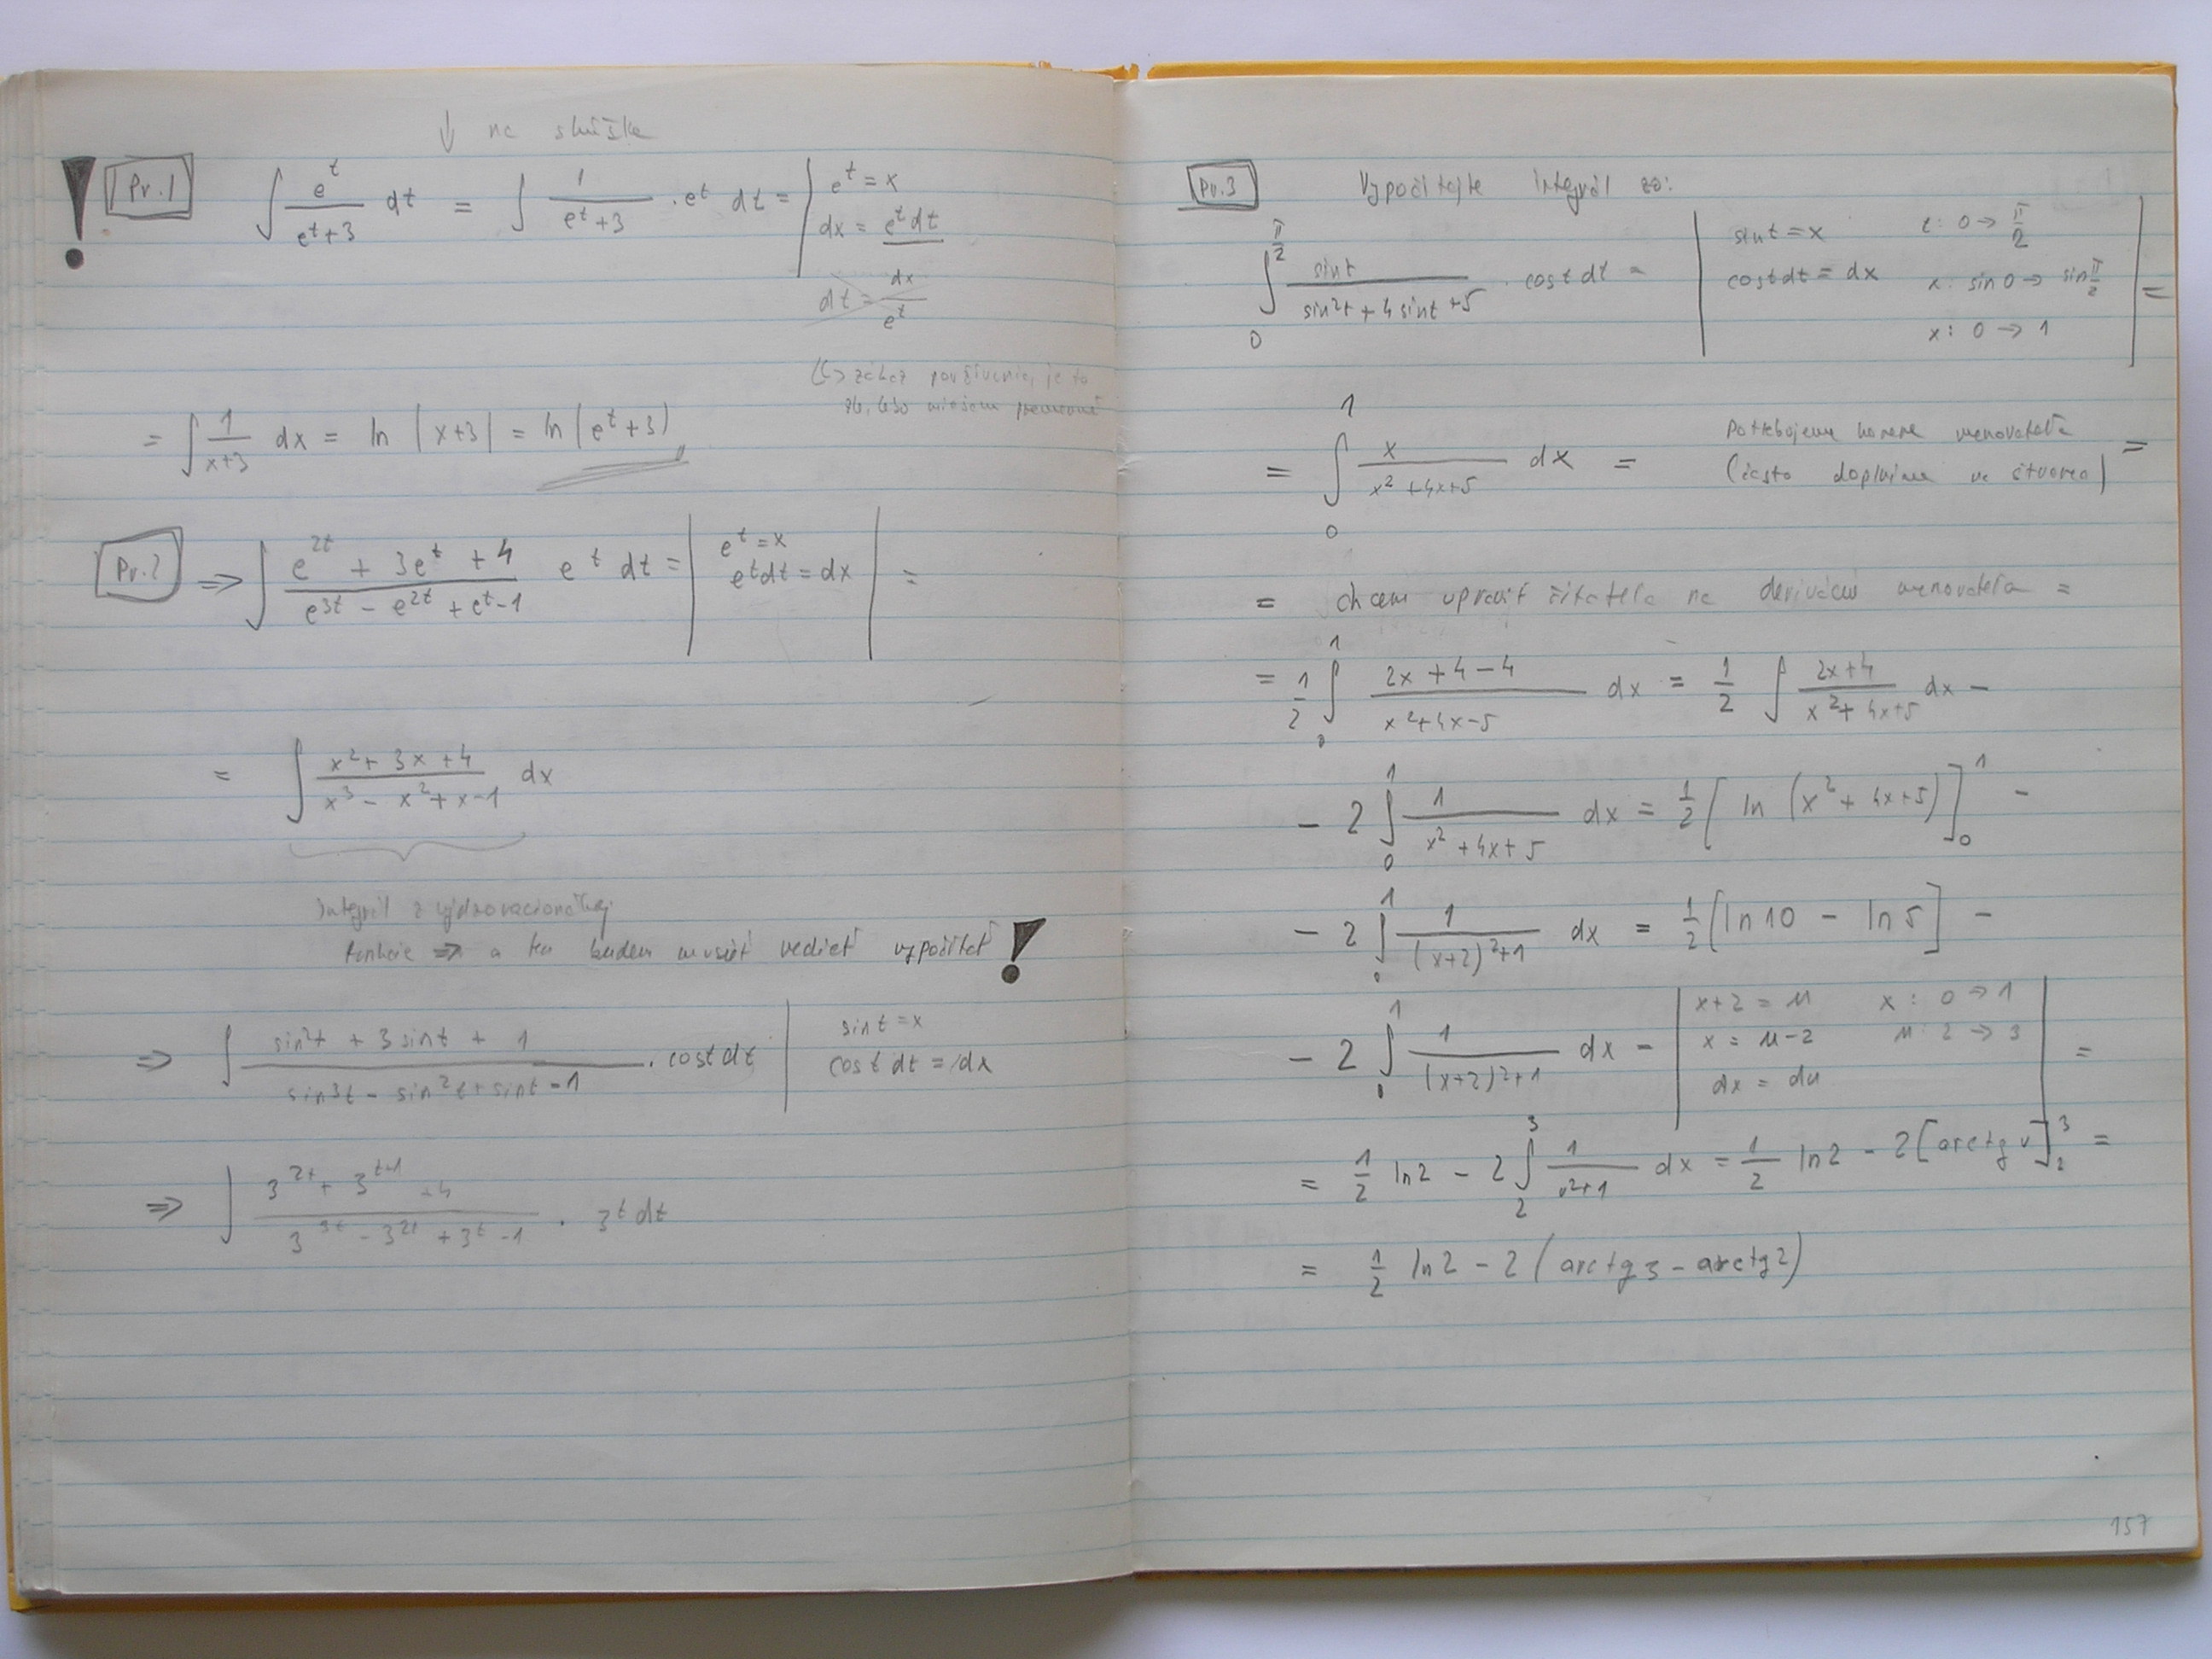 ↓ na skúške
! Pr.1 ∫ e^t/(e^t+3) dt = ∫ 1/(e^t+3) · e^t dt = | e^t = x
dx = e^t dt
dt = dx/e^t
(↳ zákaz používania, je to
zle, lebo miešam premenné
= ∫ 1/(x+3) dx = ln |x+3| = ln(e^t+3)
Pr.2 ⇒ ∫ (e^2t + 3e^t + 4)/(e^3t − e^2t + e^t − 1) e^t dt = | e^t = x
e^t dt = dx | =
= ∫ (x² + 3x + 4)/(x³ − x² + x − 1) dx
Integrál z
funkcie ⇒ a ten budem musieť vedieť vypočítať !
⇒ ∫ (sin²t + 3 sint + 1)/(sin³t − sin²t + sint − 1) · cost dt | sin t = x
cost dt = dx
⇒ ∫ (3^2t + 3^t+1 + 4)/(3^3t − 3^2t + 3^t − 1) · 3^t dt
Pr.3 Vypočítajte integrál
∫_0^π/2 sint/(sin²t + 4 sint + 5) · cost dt = | sin t = x t: 0 → π/2
cost dt = dx x: sin 0 → sin π/2 | =
x: 0 → 1
= ∫_0^1 x/(x² + 4x + 5) dx = Potrebujeme korene menovateľa
(často doplníme na štvorec) =
= chcem upraviť čitateľa na deriváciu menovateľa =
= 1/2 ∫_0^1 (2x + 4 − 4)/(x² + 4x − 5) dx = 1/2 ∫ (2x + 4)/(x² + 4x + 5) dx −
− 2 ∫_0^1 1/(x² + 4x + 5) dx = 1/2 [ ln (x² + 4x + 5) ]_0^1 −
− 2 ∫_0^1 1/((x+2)² + 1) dx = 1/2 [ln 10 − ln 5] −
− 2 ∫_0^1 1/((x+2)² + 1) dx − | x+2 = u x: 0 → 1
x = u−2 u: 2 → 3
dx = du | =
= 1/2 ln 2 − 2 ∫_2^3 1/(v²+1) dx = 1/2 ln 2 − 2 [arctg v]_2^3 =
= 1/2 ln 2 − 2 (arctg 3 − arctg 2)
157